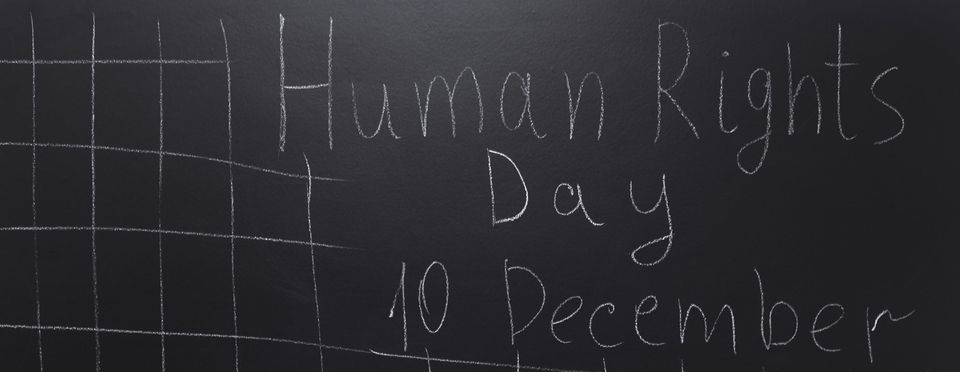 Human Rights
Day
10 December